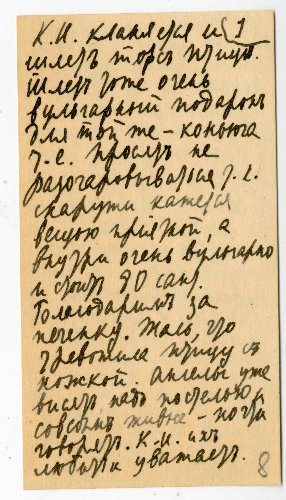 К.И. кланяется и 1
шлетъ торсъ птицы.
Шлетъ тоже очень
вульгарный подарокъ
для той же - коньюга
т.е. проситъ не
разочаровываться т.к.
снаружи кажется
вещью прiятной, а
внутри очень вульгарно
и стоитъ 90 сант.
Благодаримъ за
печенку. Жаль, что
тревожила птицу съ
ножкой. Ангелы уже
висятъ надъ постелью
совсемъ живые - почти
говорятъ. К.И. ихъ
любитъ и уважаетъ.
8